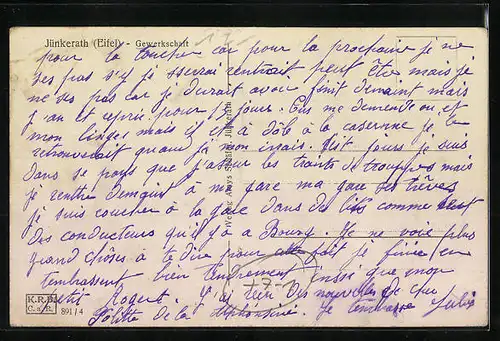 Jünkerath (Eifel) - Gewerkschaft
pour la toucher car pour la prochaine je ne
ses pas s'y je sserai rentrait peut être mais je
ne ses pas car je durait avoir finit demaint mais
j'an et repris pour 15 jours. Tus me demende ou et
mon linges mais il et à dôle à la caserine je le
retrouverait quand je m'on irrais. 8 jours je suis
dans se pays que j'assur les traits de trouppes mais
je rentre demaint à mon gare ma gare Trêves
je suis coucher à la gare dans des lits comme
des conducteurs qu'il y a Bourg. Je ne voie plus
grand choses à te dire pour fait je finie en
t'embrassent bien tendrement aussi que mon
petit Rogert. J'ai rien des nouvelles de
de la Alphonsine. Je t'embrasse Jules
Verlag Jünkerath
17-1
K.R.B.
C. a. R. 891/4